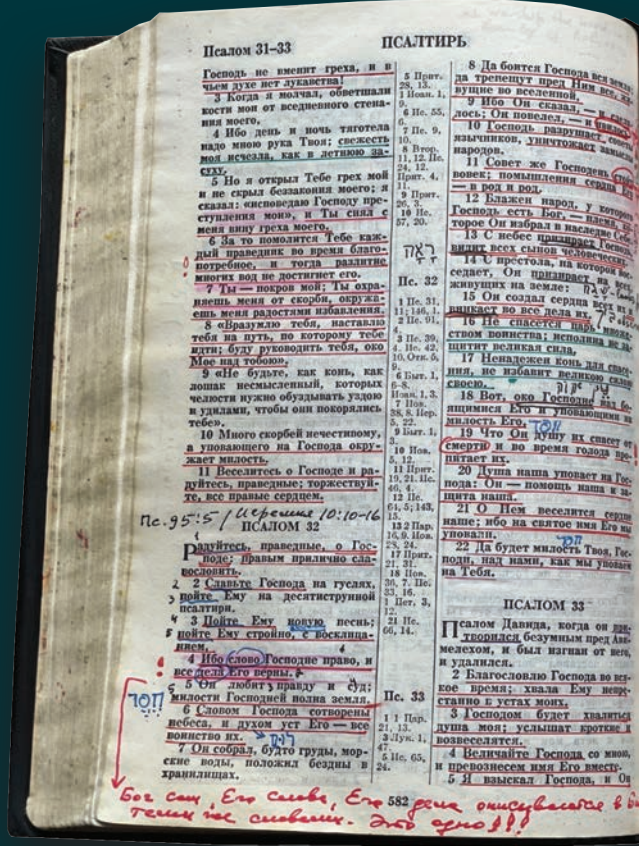 Псалом 31–33
ПСАЛТИРЬ
Господь не вменит греха, и в
чьем духе нет лукавства!
3 Когда я молчал, обветшали
кости мои от вседневного стена-
ния моего,
4 Ибо день и ночь тяготела
надо мною рука Твоя; свежесть
моя исчезла, как в летнюю за-
суху.
5 Но я открыл Тебе грех мой
и не скрыл беззакония моего; я
сказал: «исповедаю Господу пре-
ступления мои», и Ты снял с
меня вину греха моего.
6 За то помолится Тебе каж-
дый праведник во время благо-
потребное, и тогда разлитие
многих вод не достигнет его.
7 Ты — покров мой: Ты охра-
няешь меня от скорби, окружа-
ешь меня радостями избавления.
8 «Вразумлю тебя, наставлю
тебя на путь, по которому тебе
идти; буду руководить тебя, око
Мое над тобою».
9 «Не будьте, как конь, как
лошак несмысленный, которых
челюсти нужно обуздывать уздою
и удилами, чтобы они покорялись
тебе».
10 Много скорбей нечестивому,
а уповающего на Господа окру-
жает милость.
11 Веселитесь о Господе и ра-
дуйтесь, праведные; торжествуй-
те, все правые сердцем.
Пс. 95:5 / Иеремия 10:10-16
ПСАЛОМ 32
1
Радуйтесь, праведные, о Гос-
поде: правым прилично сла-
вословить.
2 2 Славьте Господа на гуслях,
3 пойте Ему на десятиструнной
псалтири.
4 3 Пойте Ему новую песнь;
5 пойте Ему стройно, с восклица-
нием,
! 4 Ибо слово Господне право, и
все дела Его верны.
5 Он любит правду и суд;
милости Господней полна земля.
חסד
6 Словом Господа сотворены
небеса, и духом уст Его — все
воинство их.
רוח
7 Он собрал, будто груды, мор-
ские воды, положил бездны в
хранилищах.
5 Прит.
28, 13.
1 Иоан. 1,
9.
6 Ис. 55,
6.
7 Пс. 9,
10.
8 Втор.
11, 12. Пс.
24, 12.
Прит. 4,
11.
9 Прит.
26, 3.
10 Ис.
57, 20.
Пс. 32
1 Пс. 31,
11; 146, 1.
2 Пс. 91,
3 Пс. 39,
4. Ис. 42,
10. Отк. 5,
9.
6 Быт. 1,
6–8.
Иоан. 1, 3.
7 Иов.
38, 8. Иер.
5, 22.
9 Быт. 1,
3.
10 Иов.
5, 12.
11 Прит.
19, 21. Ис.
46, 4.
12 Пс.
64, 5; 143,
15.
13 2 Пар.
16, 9. Иов.
28, 24.
17 Прит.
21, 31.
18 Иов.
36, 7. Пс.
33, 16.
1 Пет. 3,
12.
21 Пс.
66, 14.
Пс. 33
1 1 Цар.
21, 13.
3 Лук. 1,
47.
5 Ис. 65,
24.
8 Да боится Господа вся земля;
да трепещут пред Ним все, жи-
вущие во вселенной,
9 Ибо Он сказал, — и сде-
лось; Он повелел, — и явилось
10 Господь разрушает советы
язычников, уничтожает замыслы
народов.
11 Совет же Господень стоит
вовек; помышления сердца Его
— в род и род.
12 Блажен народ, у которого
Господь есть Бог, — племя, ко-
торое Он избрал в наследие Себе
13 С небес призирает Господь,
видит всех сынов человеческих
14 С престола, на котором вос-
седает, Он призирает на всех,
живущих на земле:
15 Он создал сердца всех их и
вникает во все дела их.
16 Не спасется царь множе-
ством воинства; исполина не за-
щитит великая сила.
17 Ненадежен конь для спасе-
ния, не избавит великою силою
своею.
18 Вот, око Господне над бо-
ящимися Его и уповающими на
милость Его,
חסד
19 Что Он душу их спасет от
смерти и во время голода про-
питает их.
20 Душа наша уповает на Гос-
пода: Он — помощь наша и за-
щита наша.
21 О Нем веселится сердце
наше; ибо на святое имя Его мы
уповали.
חסד
22 Да будет милость Твоя, Гос-
поди, над нами, как мы уповаем
на Тебя.
ПСАЛОМ 33
Псалом Давида, когда он при-
творился безумным пред Ави-
мелехом, и был изгнан от него,
и удалился.
2 Благословлю Господа во вся-
кое время; хвала Ему непре-
станно в устах моих.
3 Господом будет хвалиться
душа моя; услышат кроткие и
возвеселятся.
4 Величайте Господа со мною,
и превознесем имя Его вместе.
5 Я взыскал Господа, и Он
582
Бог сам, Его слова, Его дела описываются в
теми же словами. Это одно!!!